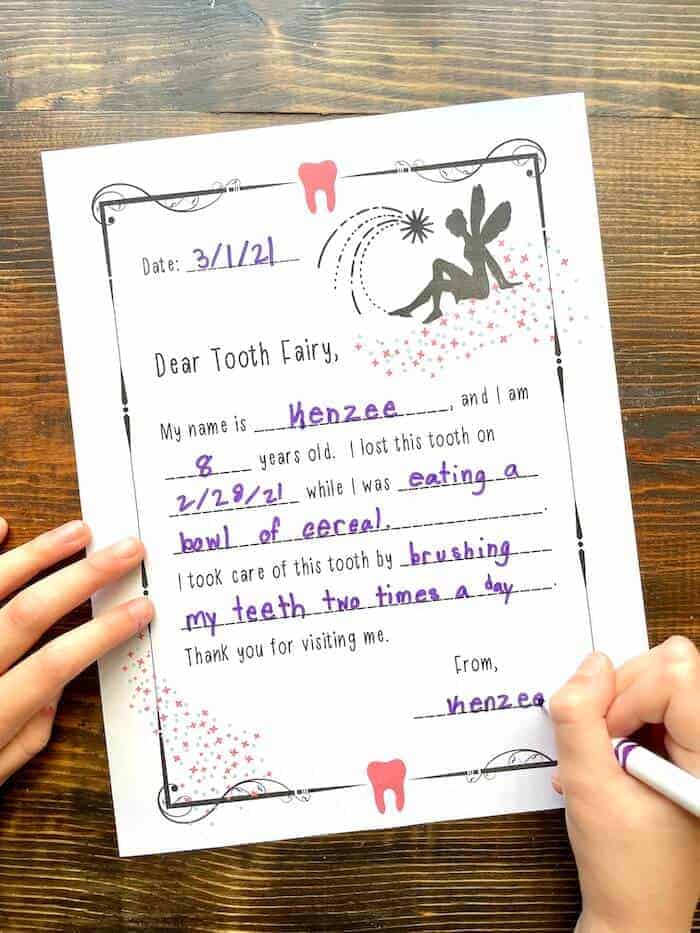 Date: 3/1/21
Dear Tooth Fairy,
My name is Kenzee, and I am
8 years old. I lost this tooth on
2/28/21 while I was eating a
bowl of cereal. .
I took care of this tooth by brushing
my teeth two times a day.
Thank you for visiting me.
From,
Kenzee